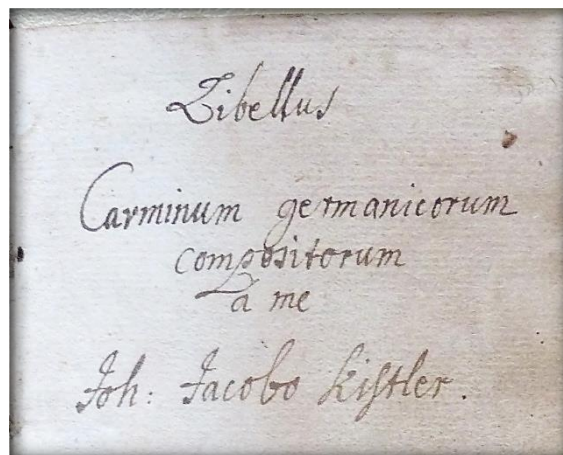 Libellus
Carminum germanicorum
compositorum
a me
Joh: Jacobo Kistler.